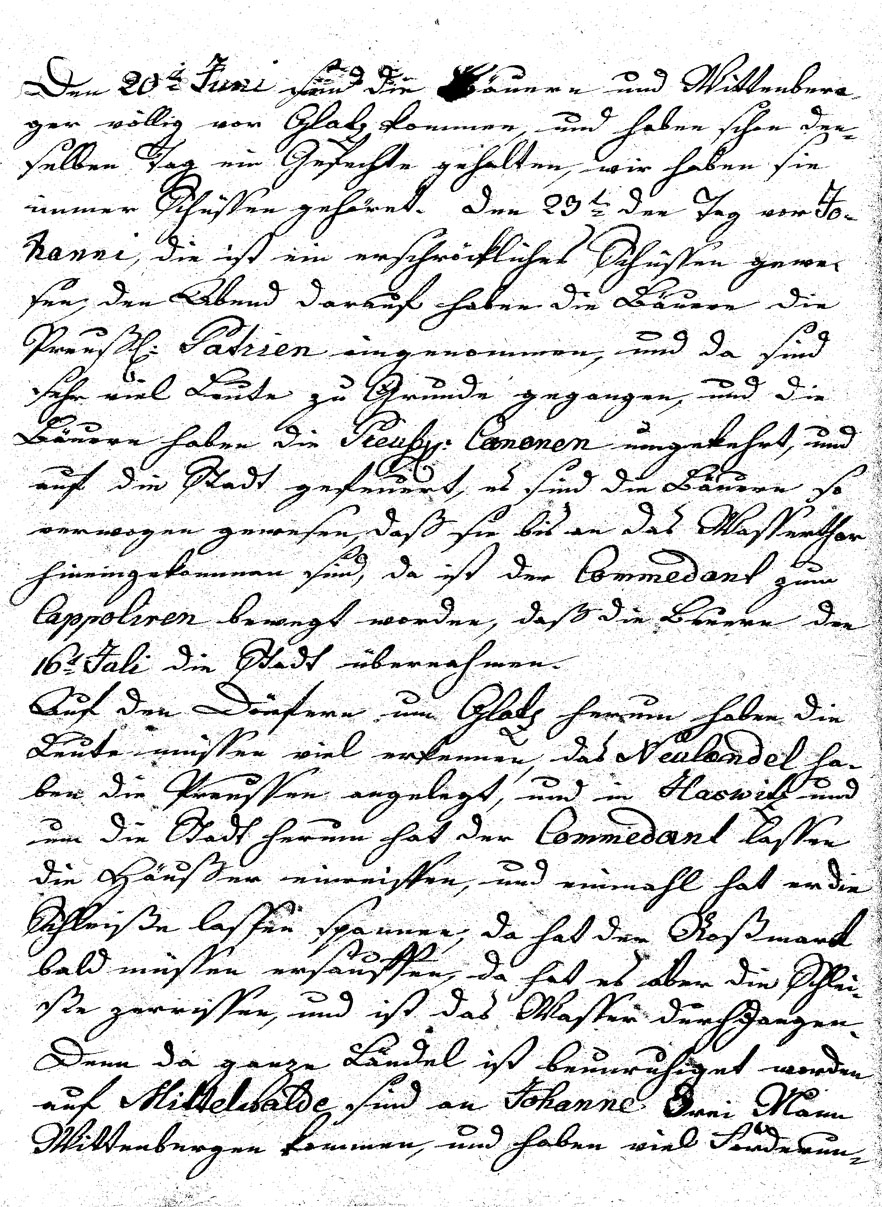 Den 20t Juni sind die Bäuern und Wittenber-
ger völlig vor Glatz kommen, und haben schon den-
selben Tag ein Gefechte gehalten, wir haben sie
immer Schüssen gehöret. Den 23t den Tag vor Jo-
hanni, die ist ein erschröckliches Schüssen gewe-
sen, den Abend darauf haben die Bäuern die
Preußl: Patrien eingenommen, und da sind
sehr viel Leute zu Grunde gegangen, und die
Bäuern haben die Preußl: Canonen umgekehrt, und
auf die Stadt gefeuert, es sind die Bäuern so
verwogen gewesen, daß sie bis an das Wasserthor
hineingekommen sind, da ist der Commedant zum
Cappoliren bewegt worden, daß die Beuern den
16t Juli die Stadt übernahmen.
Auf den Dörfern um Glatz herum haben die
Leute müssen viel erkennen, das Neulændel ha-
ben die Preussen angelegt, und in Haswitz und
um die Stadt herum hat der Commedant lassen
die Häußer einreissen, und einmahl hat er die
Schleiße lassen spannen, da hat der Roßmarck
bald müssen ersauffen, da hat es aber die Schlei-
ße zerrissen, und ist das Wasser durchgangen.
Denn da ganze Ländel ist beunruhiget worden
auf Mittelwalde sind an Johanne Drei Mann
Wittenbergen kommen, und haben viel Forderun-